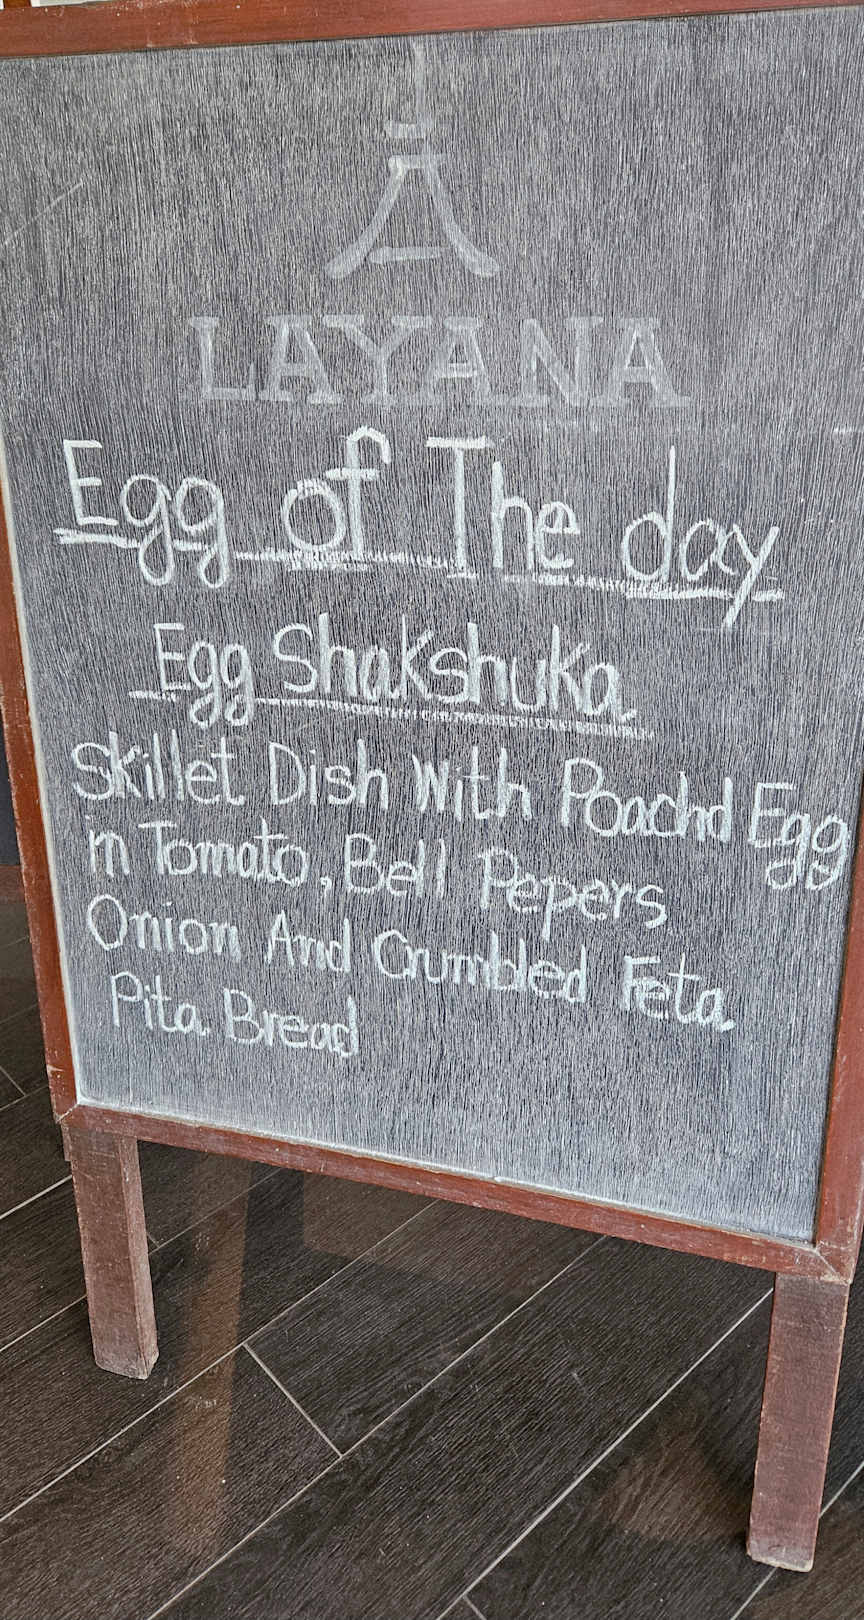 LAYANA
Egg of The day
Egg Shakshuka
Skillet Dish With Poachd Egg
in Tomato, Bell Pepers
Onion And Crumbled Feta
Pita Bread